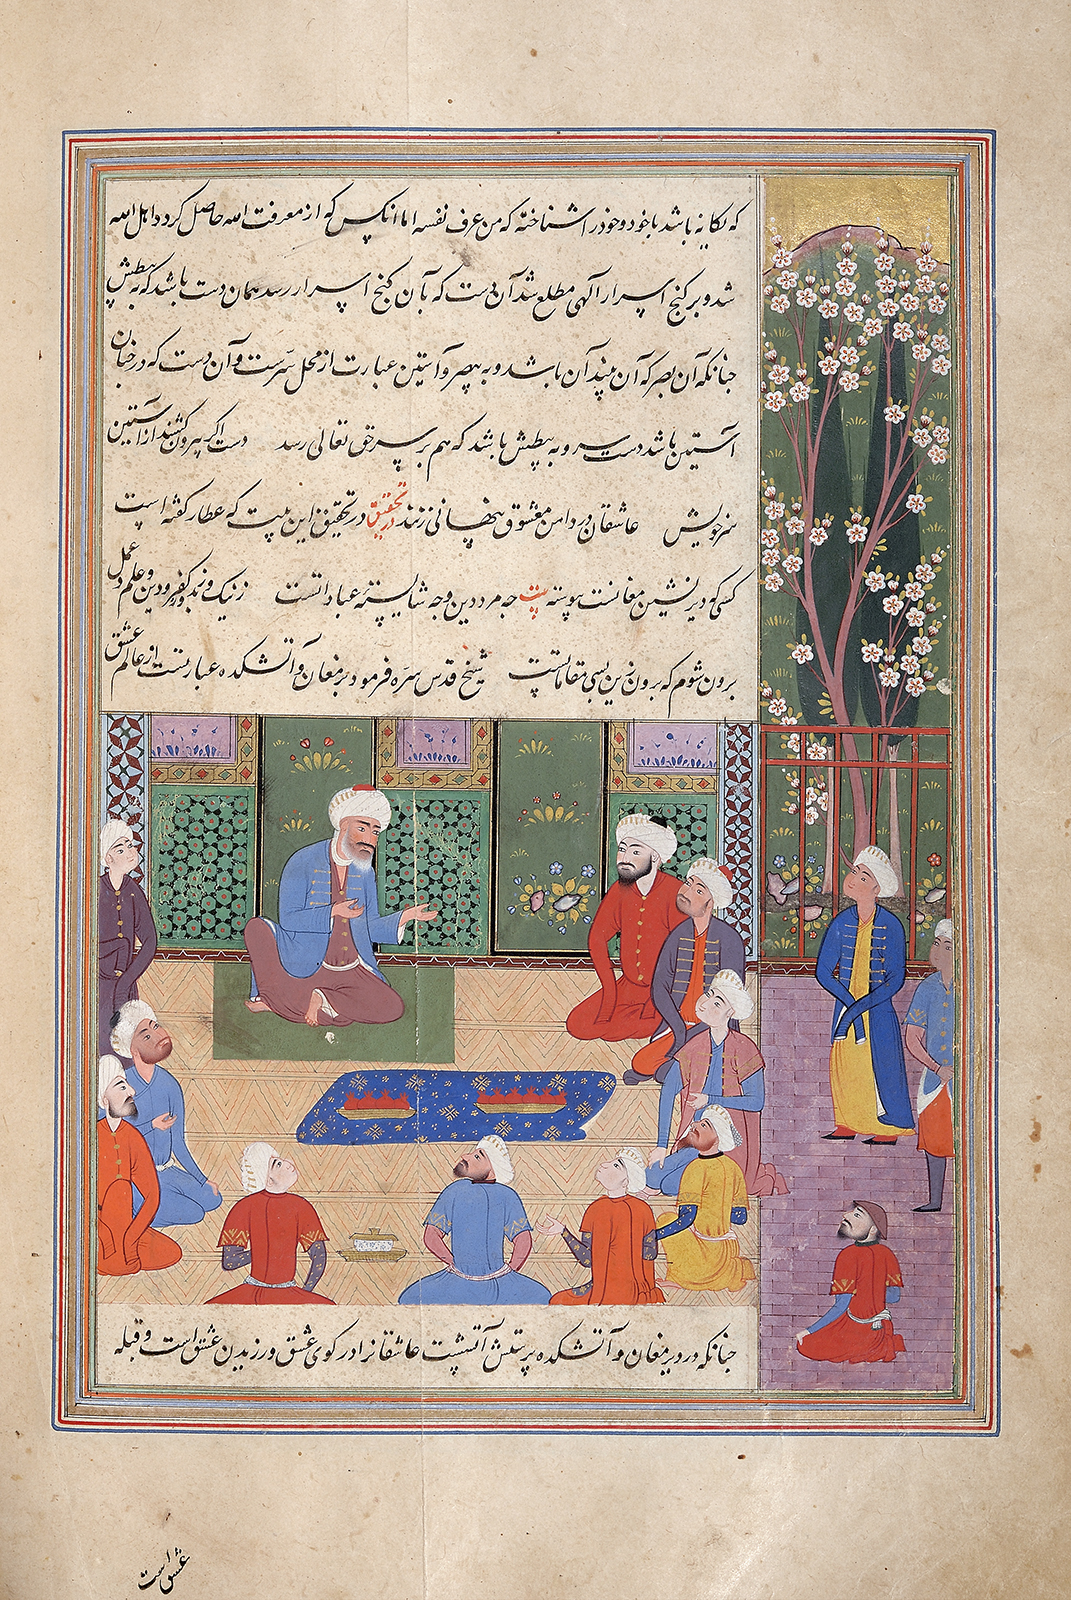 که یکانه باشد باخود و خود را شناخته که من عرف نفسه اما انکس که از معرفت الله حاصل کرد و اهل الله
شد و بر کنج اسرار الهی مطلع شد آن دست که بآن کنج اسرار رسد همان دست باشد که به یبطش
چنانکه آن بصر که آن بیند آن باشد و به یبصر و آستین عبارت از محل سرّست و آن دست که در چنان
آستین باشد دست سر و به یبطش باشد که هم بر سر حق تعالی رسد دست اگر بیرون کشند از آستین
سر خویش عاشقان در دامن معشوق پنهانی زنند در تحقیق در تحقیق این بیت که عطار کفته است
کسی که دیر نشین مغانست پیوسته بیت چه مرد دین و چه شایستهٔ عباداتست ز نیک و ز بد و کفر و دین و علم و عمل
برون شوم که برون زین بسی مقاماتست شیخ قدس سرّه فرمود دیر مغان و آتشکده عبارتست از عالم عشق
چنانکه در دیر مغان و آتشکده پرستش آتشست عاشقانرا در کوی عشق ورزیدن عشق است و قبله
عشق است